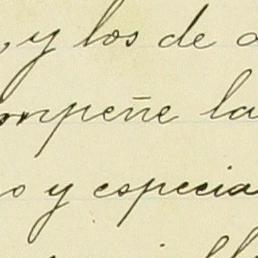 , y los de
ompeñe la
o y especia